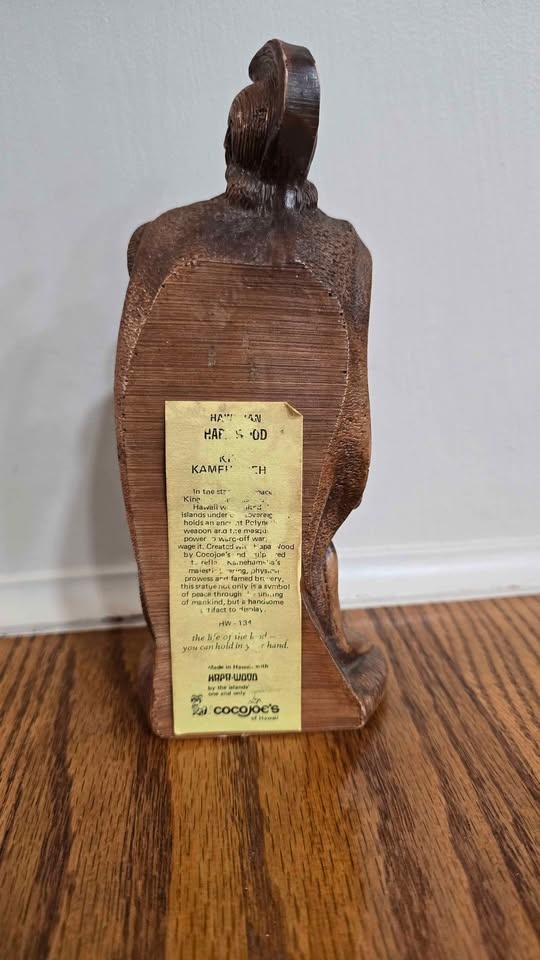 HAWAIIAN
HAPA WOOD
KING
KAMEHAMEHA
In the
King
Hawaii
islands under
holds an ancient
weapon and the
power to ward-off war,
wage it. Created with Hapa Wood
by Cocojoe's and sculptured
to reflect Kamehameha's
majestic bearing, physical
prowess and famed bravery,
this statue not only is a symbol
of peace through the uniting
of mankind, but a handsome
artifact to display.
HW - 134
the life of the land –
you can hold in your hand.
Made in Hawaii with
HAPA-WOOD
by the islands'
one and only
COCOJOE'S
of Hawaii